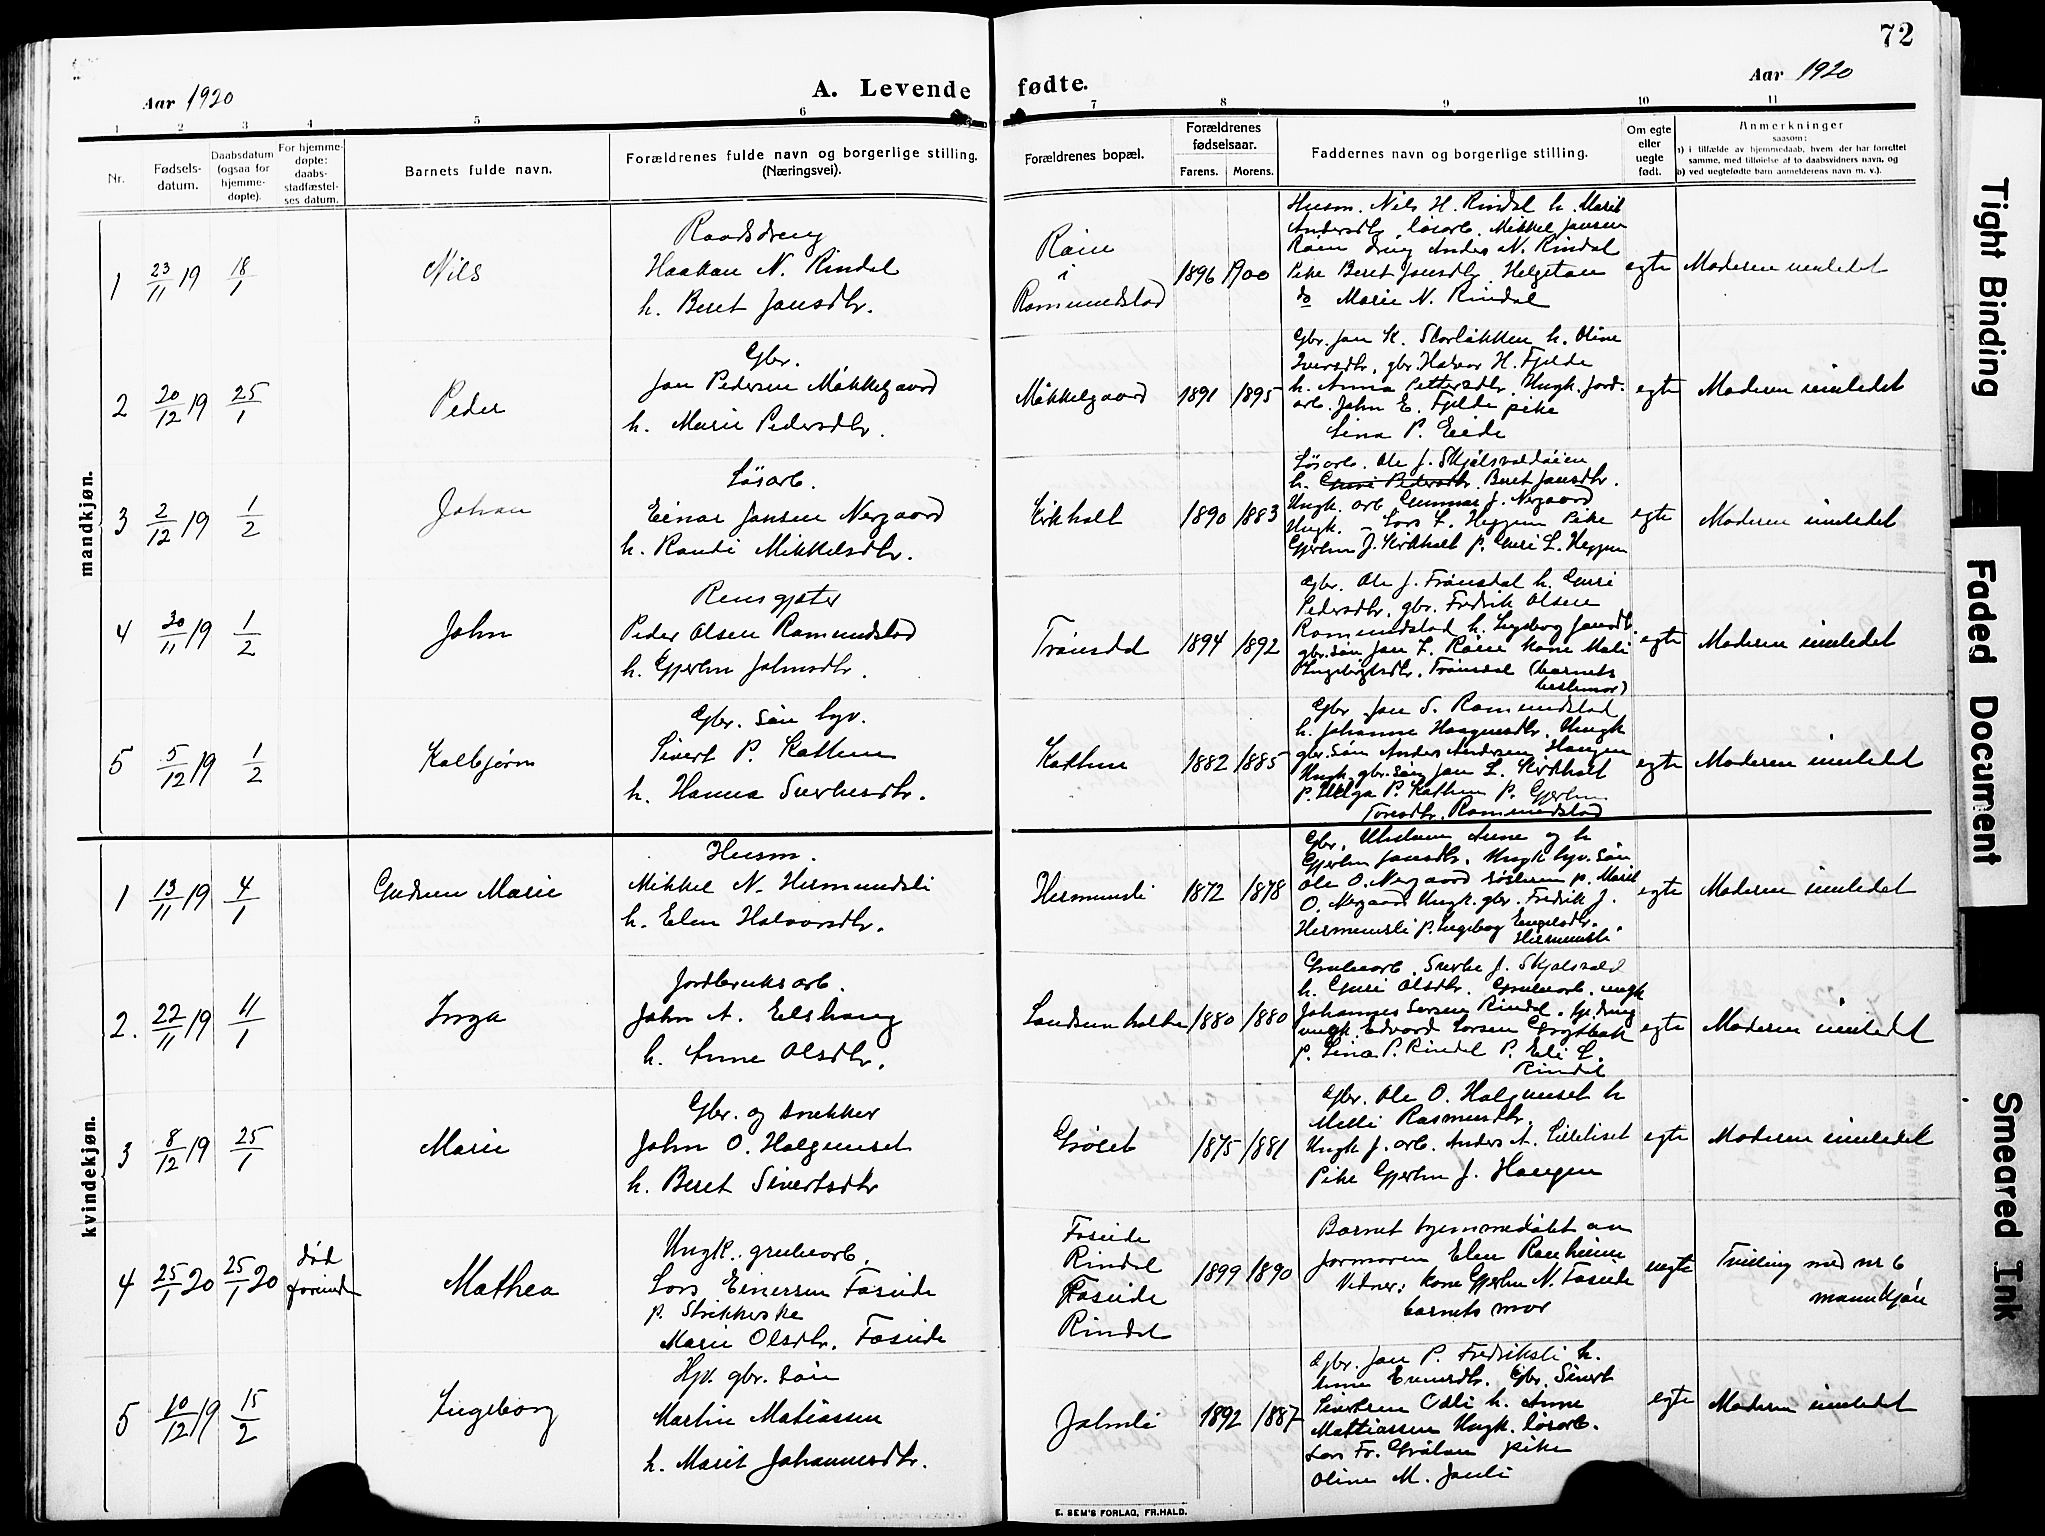 72
Aar 1920
A. Levende fødte.
Aar 1920
1 2 3 4 5 6 7 8 9 10 11
Nr.
Fødsels-
datum.
Daabsdatum
(ogsaa for
hjemme-
døpte).
For hjemme-
døpte:
daabs-
stadfæstel-
ses datum.
Barnets fulde navn.
Forældrenes fulde navn og borgerlige stilling.
(Næringsvei).
Forældrenes bopæl.
Forældrenes
fødselsaar.
Farens. Morens.
Faddernes navn og borgerlige stilling.
Om egte
eller
uegte
født.
Anmerkninger
saasom:
a) i tilfælde av hjemmedaab, hvem der har forrettet
samme, med tilføielse af to daabsvidners navn, og
b) ved uegtefødte barn anmelderens navn m. v.).
mandkjøn.
1 23/11 19 18/1 Nils
Raadsdreng
Haakan N. Rindal
h. Beret Jansdtr.
Røen
i
Romundstad
1896 1900
Husm. Nils H. Rindal h. Marit
Andersdtr. løsarb. Mikkel Jansen
Røen dreng Anders N. Rindal
Pike Beret Jansdtr. Helgetun
do Marie N. Rindal
egte Moderen innledet
2 20/12 19 25/1 Peder
Gbr.
Jan Pedersen Møkkelgaard
h. Marie Pedersdtr.
Møkkelgaard 1891 1895
Gbr. Jan K. Storløkken h. Oline
Iversdtr. gbr. Halvor H. Fjelde
h. Anna Pettersdtr. Ungk. jord.
arb. John E. Fjelde pike
Lina P. Eide
egte Moderen innledet
3 2/12 19 1/2 Johan
Løsarb.
Einar Jansen Nergaard
h. Randi Mikkelsdtr.
Kirkholt 1890 1883
Løsarb. Ole J. Skjølsvoldøien
h. Guri Pedersdtr. Beret Jansdtr.
Ungk. arb. Gunnar J. Nergaard
Ungk. – Lars L. Heggem Pike
Gjertru J. Kirkholt p. Guri L. Heggem
egte Moderen innledet
4 30/11 19 1/2 John
Rensgjeter
Peder Olsen Romundstad
h. Gjertru Johnsdtr.
Trønsdal 1894 1892
Gbr. Ole J. Trønsdal h. Guri
Pedersdtr. gbr. Fredrik Olsen
Romundstad h. Ingebog Jansdtr.
gbr. søn Jan L. Røen kone Mali
Ingebrigtsdtr. Trønsdal (barnets
bestemor)
egte Moderen innledet
5 5/12 19 1/2 Kolbjørn
Gbr. søn hgv.
Sivert P. Kattem
h. Hanna Sverkesdtr.
Kattem 1882 1885
Gbr. Jan S. Romundstad
h. Johanne Haagensdtr. Ungk
gbr. søn Anders Andersen Haugen
Ungk. gbr. søn Jan L. Kirkholt
p. Helga P. Kattem p. Gjertru
Toresdtr. Romundstad
egte Moderen innledet
kvindekjøn.
1 13/11 19 4/1 Gudrun Marie
Husm.
Mikkel N. Hermundsli
h. Elen Halvorsdtr.
Hermunsli 1872 1878
Gjertru Jansdtr. Ungk hgv. søn
Ole O. Nergaard søsteren p. Marit
O. Nergaard Ungk. gbr. Fredrik J.
Hermunsli p. Ingebog Engelsdtr.
Hermunsli
egte Moderen innledet
2. 22/11 19 11/1 Inga
Jordbruksarb.
John A. Elshaug
h. Anne Olsdtr.
1880 1880
Grubearb. Sverke J. Skjølsvold
h. Guri Olsdtr. Grubearb. ungk
Johannes Larsen Rindal. Gr. dreng
ungk. Edvard Larsen Grytbak
p. Lina P. Rindal P. Eli L.
Rindal
egte Moderen innledet
3 8/12 19 25/1 Marie
Gbr. og snekker
John O. Halgunset
h. Beret Sivertsdtr
Grøset 1875 1881
Gbr. Ole O. Halgunset h
Melli Rasmusdtr.
Ungk J. arb. Anders A. Lilletiset
Pike Gjertru J. Haugen
egte Moderen innledet
4 25/1 20 25/1 20 død
forinden
Mathea
Ungk. grubearb.
Lars Einersen Foseide
p. Strikkerske
Marie Olsdtr. Foseide
Foseide
Rindal
Foseide
Rindal
1899 1890
Barnet hjemmedøbt av
jormoren Elen Ranheim
Vidner: kone Gjertru N. Foseide
barnets mor
uegte Tvilling med nr 6
mannkjøn
5 10/12 19 15/2 Ingeborg
Hgv. gbr. søn
Martin Matiassen
h. Marit Johannesdtr.
Jolmli 1892 1887
Gbr. Jan P. Fredriksli h.
Anne Evensdtr. Gbr. Sivert
Sivertsen Odli h. Anne
Mattiassen Ungk. løsarb.
Lars Fr. Grølan pike
Oline M. Janli
egte Moderen innledet
E. SEM'S FORLAG, FR.HALD.
Tight Binding
Faded Document
Smeared Ink